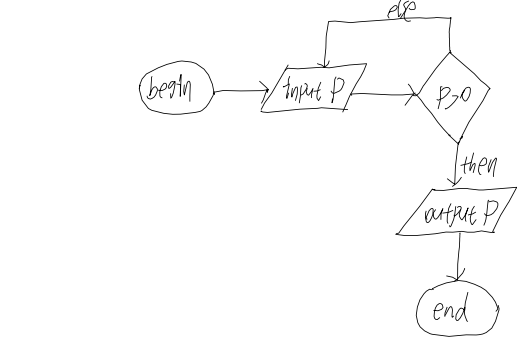 else
begin
input P
P>0
then
output P
end